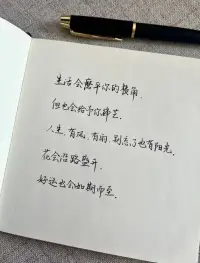 生活会磨平你的棱角,
但也会给予你锋芒.
人生,有风,有雨,别忘了也有阳光.
花会沿路盛开.
好运也会如期而至.